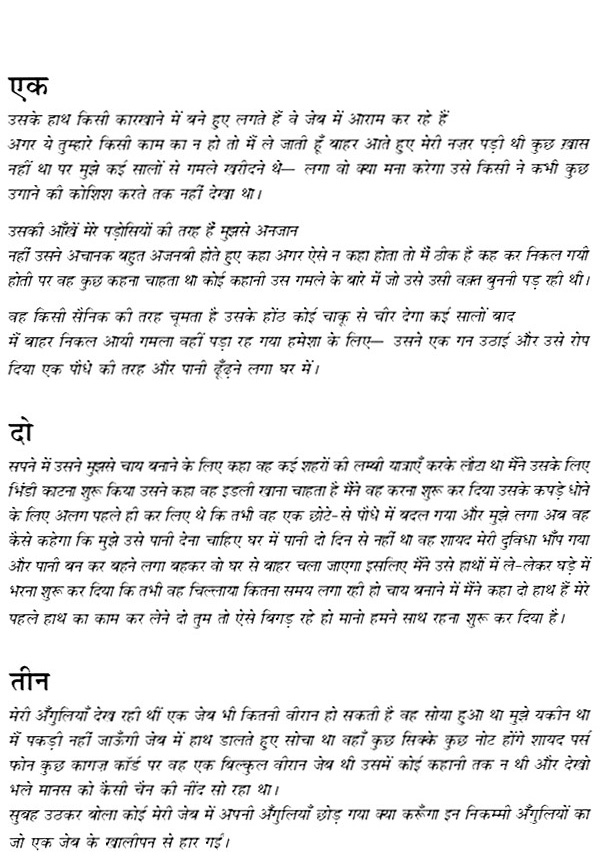 एक
उसके हाथ किसी कारखाने में बने हुए लगते हैं वे जेब में आराम कर रहे हैं
अगर ये तुम्हारे किसी काम का न हो तो मैं ले जाती हूँ बाहर आते हुए मेरी नज़र पड़ी थी कुछ ख़ास
नहीं था पर मुझे कई सालों से गमले खरीदने थे— लगा वो क्या मना करेगा उसे किसी ने कभी कुछ
उगाने की कोशिश करते तक नहीं देखा था।
उसकी आँखें मेरे पड़ोसियों की तरह हैं मुझसे अनजान
नहीं उसने अचानक बहुत अजनबी होते हुए कहा अगर ऐसे न कहा होता तो मैं ठीक है कह कर निकल गयी
होती पर वह कुछ कहना चाहता था कोई कहानी उस गमले के बारे में जो उसे उसी वक़्त बुननी पड़ रही थी।
वह किसी सैनिक की तरह चूमता है उसके होंठ कोई चाकू से चीर देगा कई सालों बाद
मैं बाहर निकल आयी गमला वहीं पड़ा रह गया हमेशा के लिए— उसने एक गन उठाई और उसे रोप
दिया एक पौधे की तरह और पानी ढूँढ़ने लगा घर में।
दो
सपने में उसने मुझसे चाय बनाने के लिए कहा वह कई शहरों की लम्बी यात्राएँ करके लौटा था मैंने उसके लिए
भिंडी काटना शुरू किया उसने कहा वह इडली खाना चाहता है मैंने वह करना शुरू कर दिया उसके कपड़े धोने
के लिए अलग पहले ही कर लिए थे कि तभी वह एक छोटे-से पौधे में बदल गया और मुझे लगा अब वह
कैसे कहेगा कि मुझे उसे पानी देना चाहिए घर में पानी दो दिन से नहीं था वह शायद मेरी दुविधा भाँप गया
और पानी बन कर बहने लगा बहकर वो घर से बाहर चला जाएगा इसलिए मैंने उसे हाथों में ले-लेकर घड़े में
भरना शुरू कर दिया कि तभी वह चिल्लाया कितना समय लगा रही हो चाय बनाने में मैंने कहा दो हाथ हैं मेरे
पहले हाथ का काम कर लेने दो तुम तो ऐसे बिगड़ रहे हो मानो हमने साथ रहना शुरू कर दिया है।
तीन
मेरी अँगुलियाँ देख रही थीं एक जेब भी कितनी वीरान हो सकती है वह सोया हुआ था मुझे यकीन था
मैं पकड़ी नहीं जाऊँगी जेब में हाथ डालते हुए सोचा था वहाँ कुछ सिक्के कुछ नोट होंगे शायद पर्स
फोन कुछ कागज़ कॉर्ड पर वह एक बिल्कुल वीरान जेब थी उसमें कोई कहानी तक न थी और देखो
भले मानस को कैसी चैन की नींद सो रहा था।
सुबह उठकर बोला कोई मेरी जेब में अपनी अँगुलियाँ छोड़ गया क्या करूँगा इन निकम्मी अँगुलियों का
जो एक जेब के खालीपन से हार गईं।